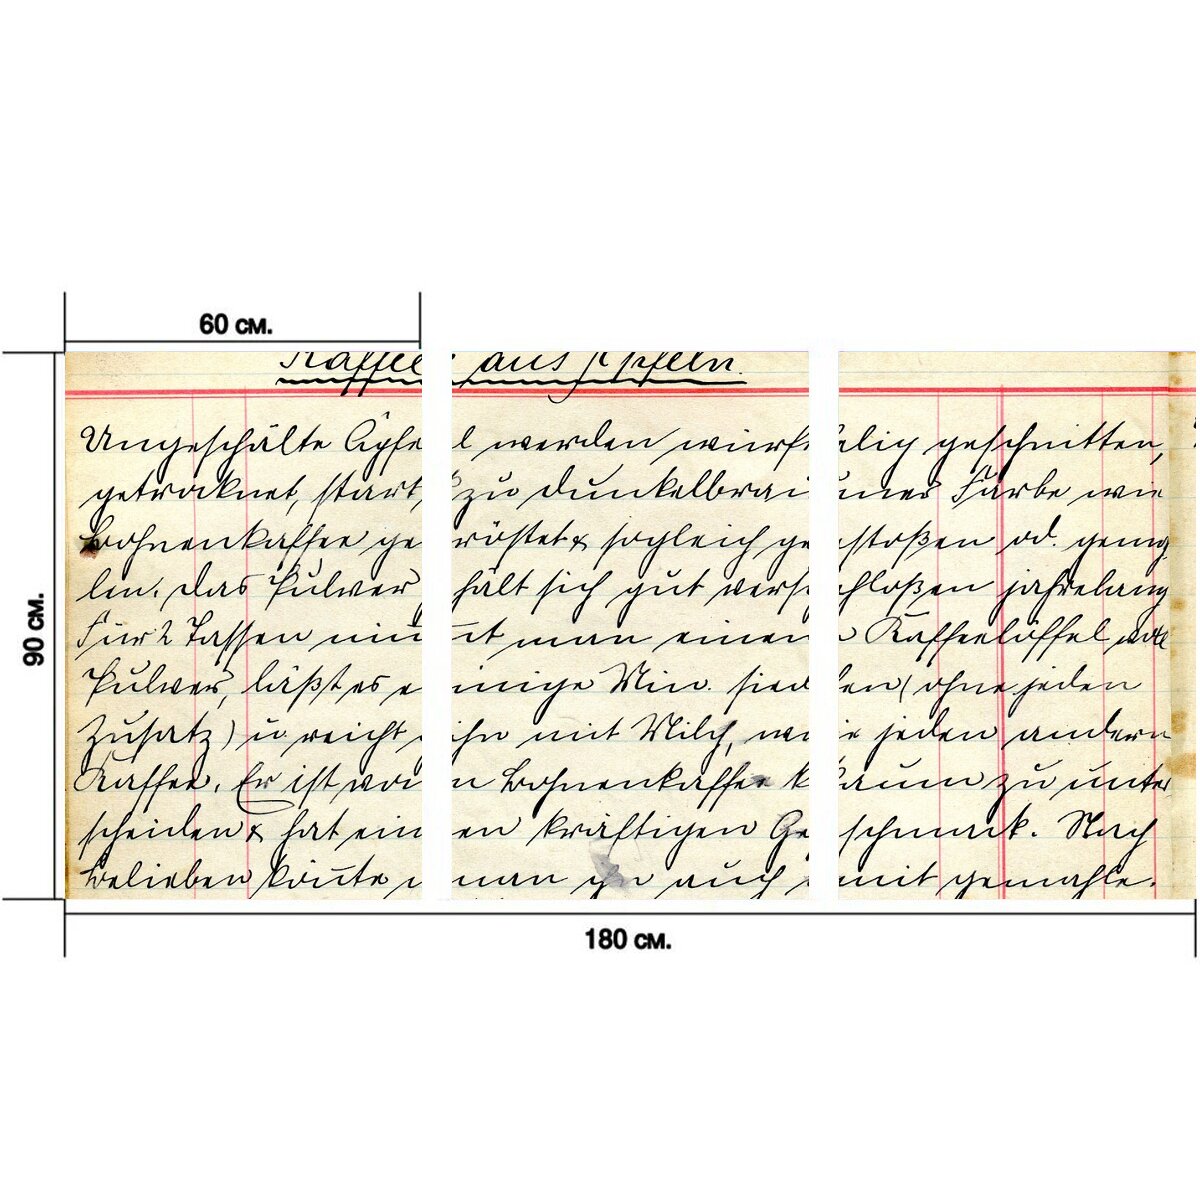 60 см.
Kaffee aus Äpfeln.
Ungeschälte Äpfel werden würflig geschnitten,
getrocknet, stark zu dunkelbrauner Farbe wie
Bohnenkaffee geröstet & sogleich gestoßen od. gemah
len. Das Pulver hält sich gut verschloßen jahrelang
Für 2 Tassen nimt man einen Kaffeelöffel voll
Pulver, läßt es einige Min. sieden (ohne jeden
Zusatz) u. reicht ihn mit Milch, wie jeden andern
Kaffee. Er ist von Bohnenkaffee kaum zu unter
scheiden & hat einen kräftigen Geschmack. Nach
Belieben könte man ihn auch mit gemahle.
90 см.
180 см.